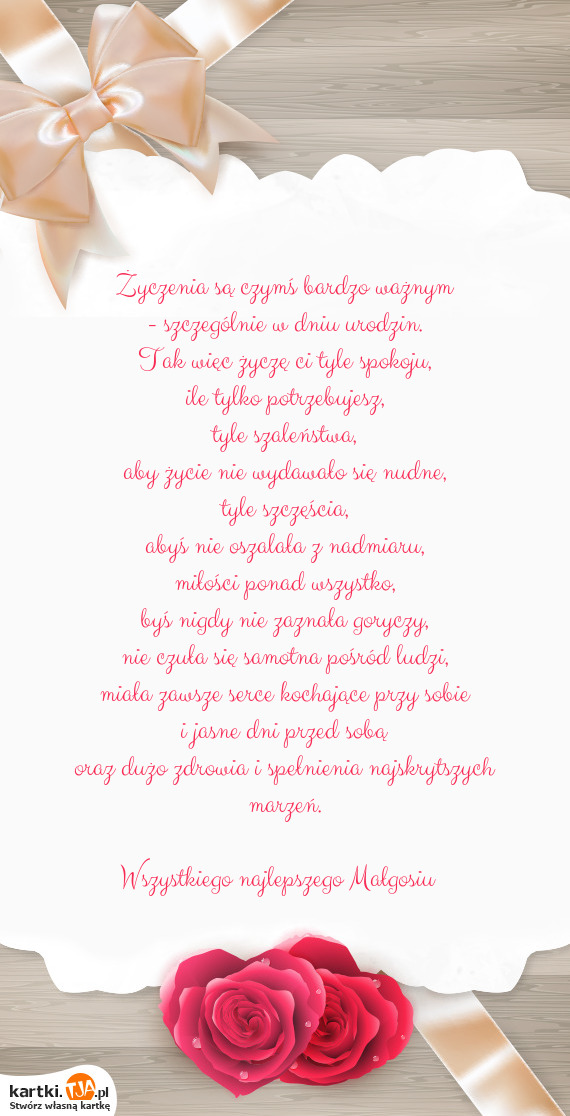 Życzenia są czymś bardzo ważnym
- szczególnie w dniu urodzin.
Tak więc życzę ci tyle spokoju,
ile tylko potrzebujesz,
tyle szaleństwa,
aby życie nie wydawało się nudne,
tyle szczęścia,
abyś nie oszalała z nadmiaru,
miłości ponad wszystko,
byś nigdy nie zaznała goryczy,
nie czuła się samotna pośród ludzi,
miała zawsze serce kochające przy sobie
i jasne dni przed sobą
oraz dużo zdrowia i spełnienia najskrytszych
marzeń.
Wszystkiego najlepszego Małgosiu
kartki.TJA.pl
Stwórz własną kartkę